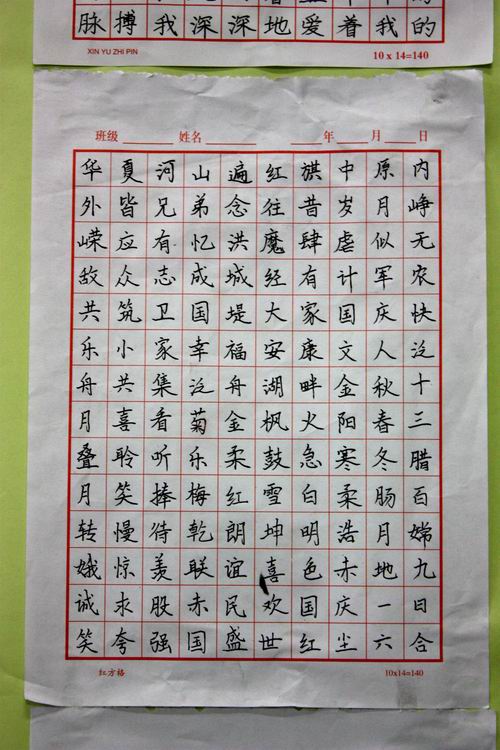 脉搏我深深地爱着我的
XIN YU ZHI PIN
10 x 14=140
班级 姓名 年 月 日
华夏河山遍红旗中原内
外皆兄弟念往昔岁月峥
嵘应有忆洪魔肆虐似无
敌众志成城经有计军农
共筑卫国堤大家国庆快
乐小家幸福安康文人泛
舟共集泛舟湖畔金秋十
月喜看菊金枫火阳春三
叠聆听乐柔鼓急寒冬腊
月笑捧梅红雪白柔肠百
转慢待乾朗坤明浩月嫦
娥惊羡联谊喜色赤地九
诚求股赤民欢国庆一日
笑夸强国盛世红尘六合
红方格
10x14=140